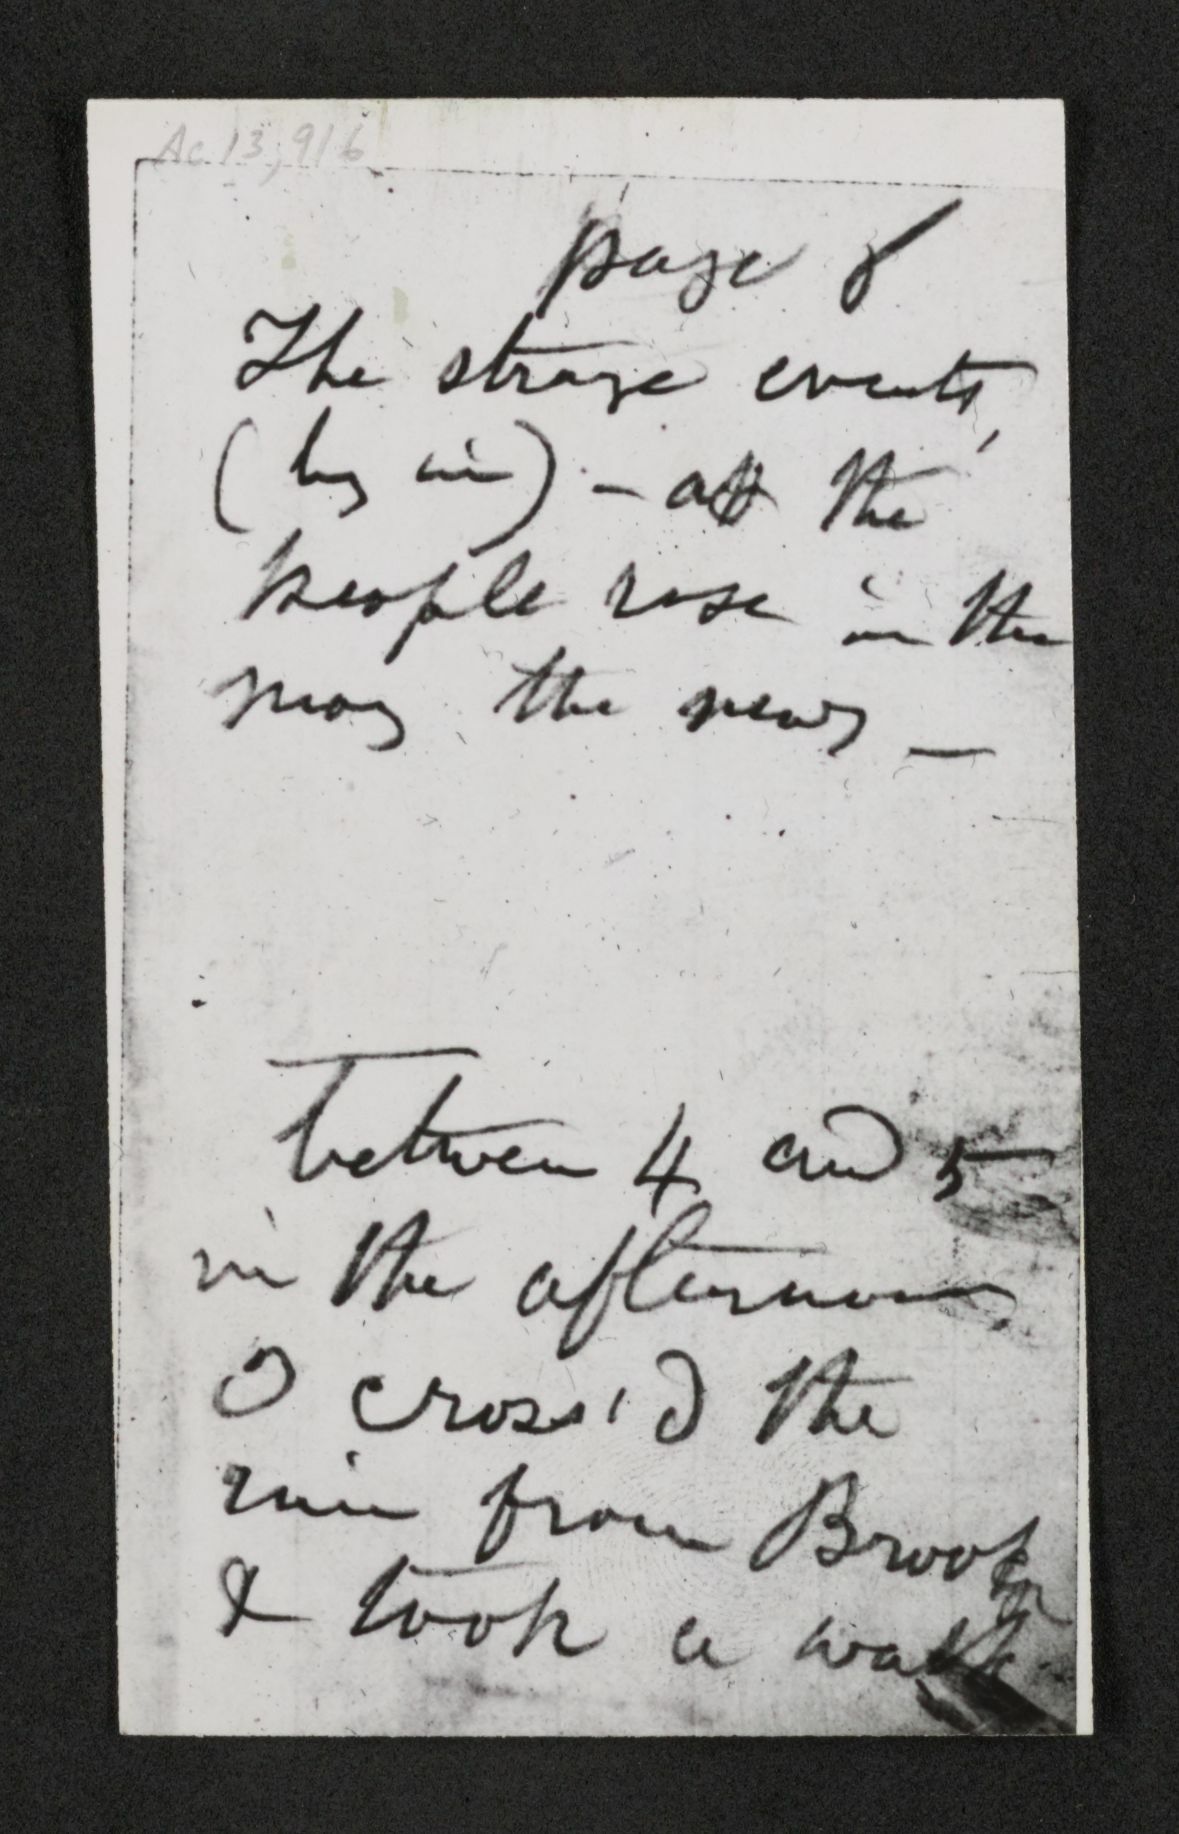 Ac. 13,916
page 8
The strange events,
(by in) – all the
people rose in the
morng the news —
between 4 and 5
in the afternoon
I cross'd the
river from Brookln
& took a walk